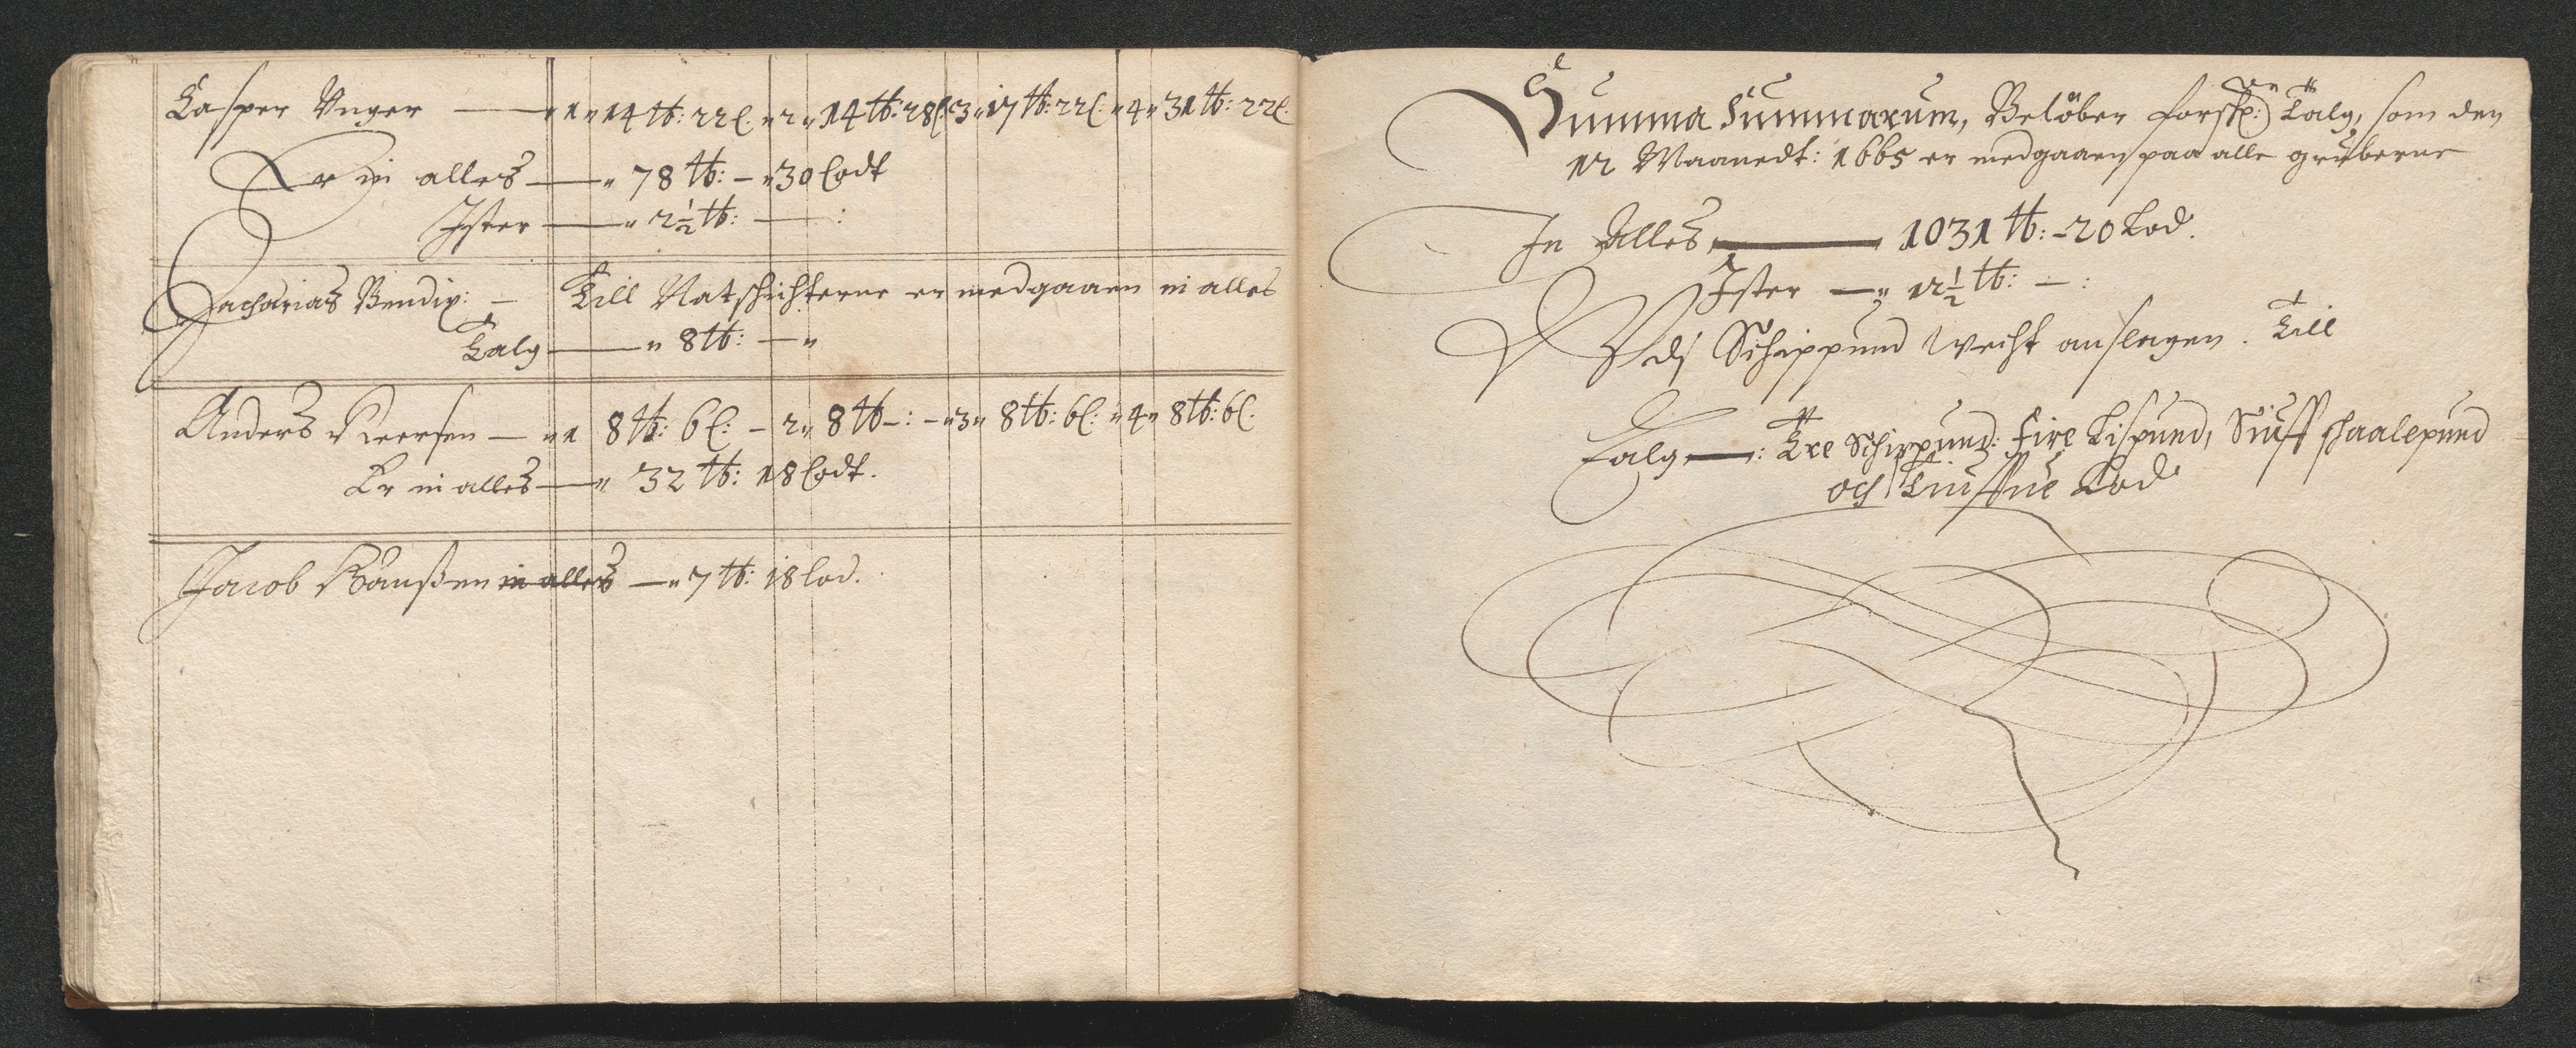 Casper Unger — " 1 " 14 ℔: 22 l. " 2 " 14 ℔: 28 l. " 3 " 17 ℔: 22 l: " 4 " 31 ℔: 22 l.
Er in alles — " 78 ℔: — " 30 Lodt
Ister — " 2½ ℔: — :
Zacharias Bendix: — Till Natschichterne er medgaaen in alles
Talg — " 8 ℔: — "
Anders Iversen — " 1 8 ℔: 6 l: — 2 " 8 ℔ — : — " 3 " 8 ℔: 6 l: " 4 " 8 ℔: 6 l.
Er in alles — " 32 ℔: 18 Lodt.
Jacob in alles — " 7 ℔: 18 lod.
Summa Summarum, Belöber forskp: Talg, som den
12 Maanedt: 1665 er medgaaen paa alle gruberne
In Alles — 1031 ℔: — 20 Lod.
Ister — " 12½ ℔: — :
Schippund Wecht anslagen. Till
Talg — : Tre Schippund: Fire Lispund, Siuff schaalepund
och Tiuffue Lod